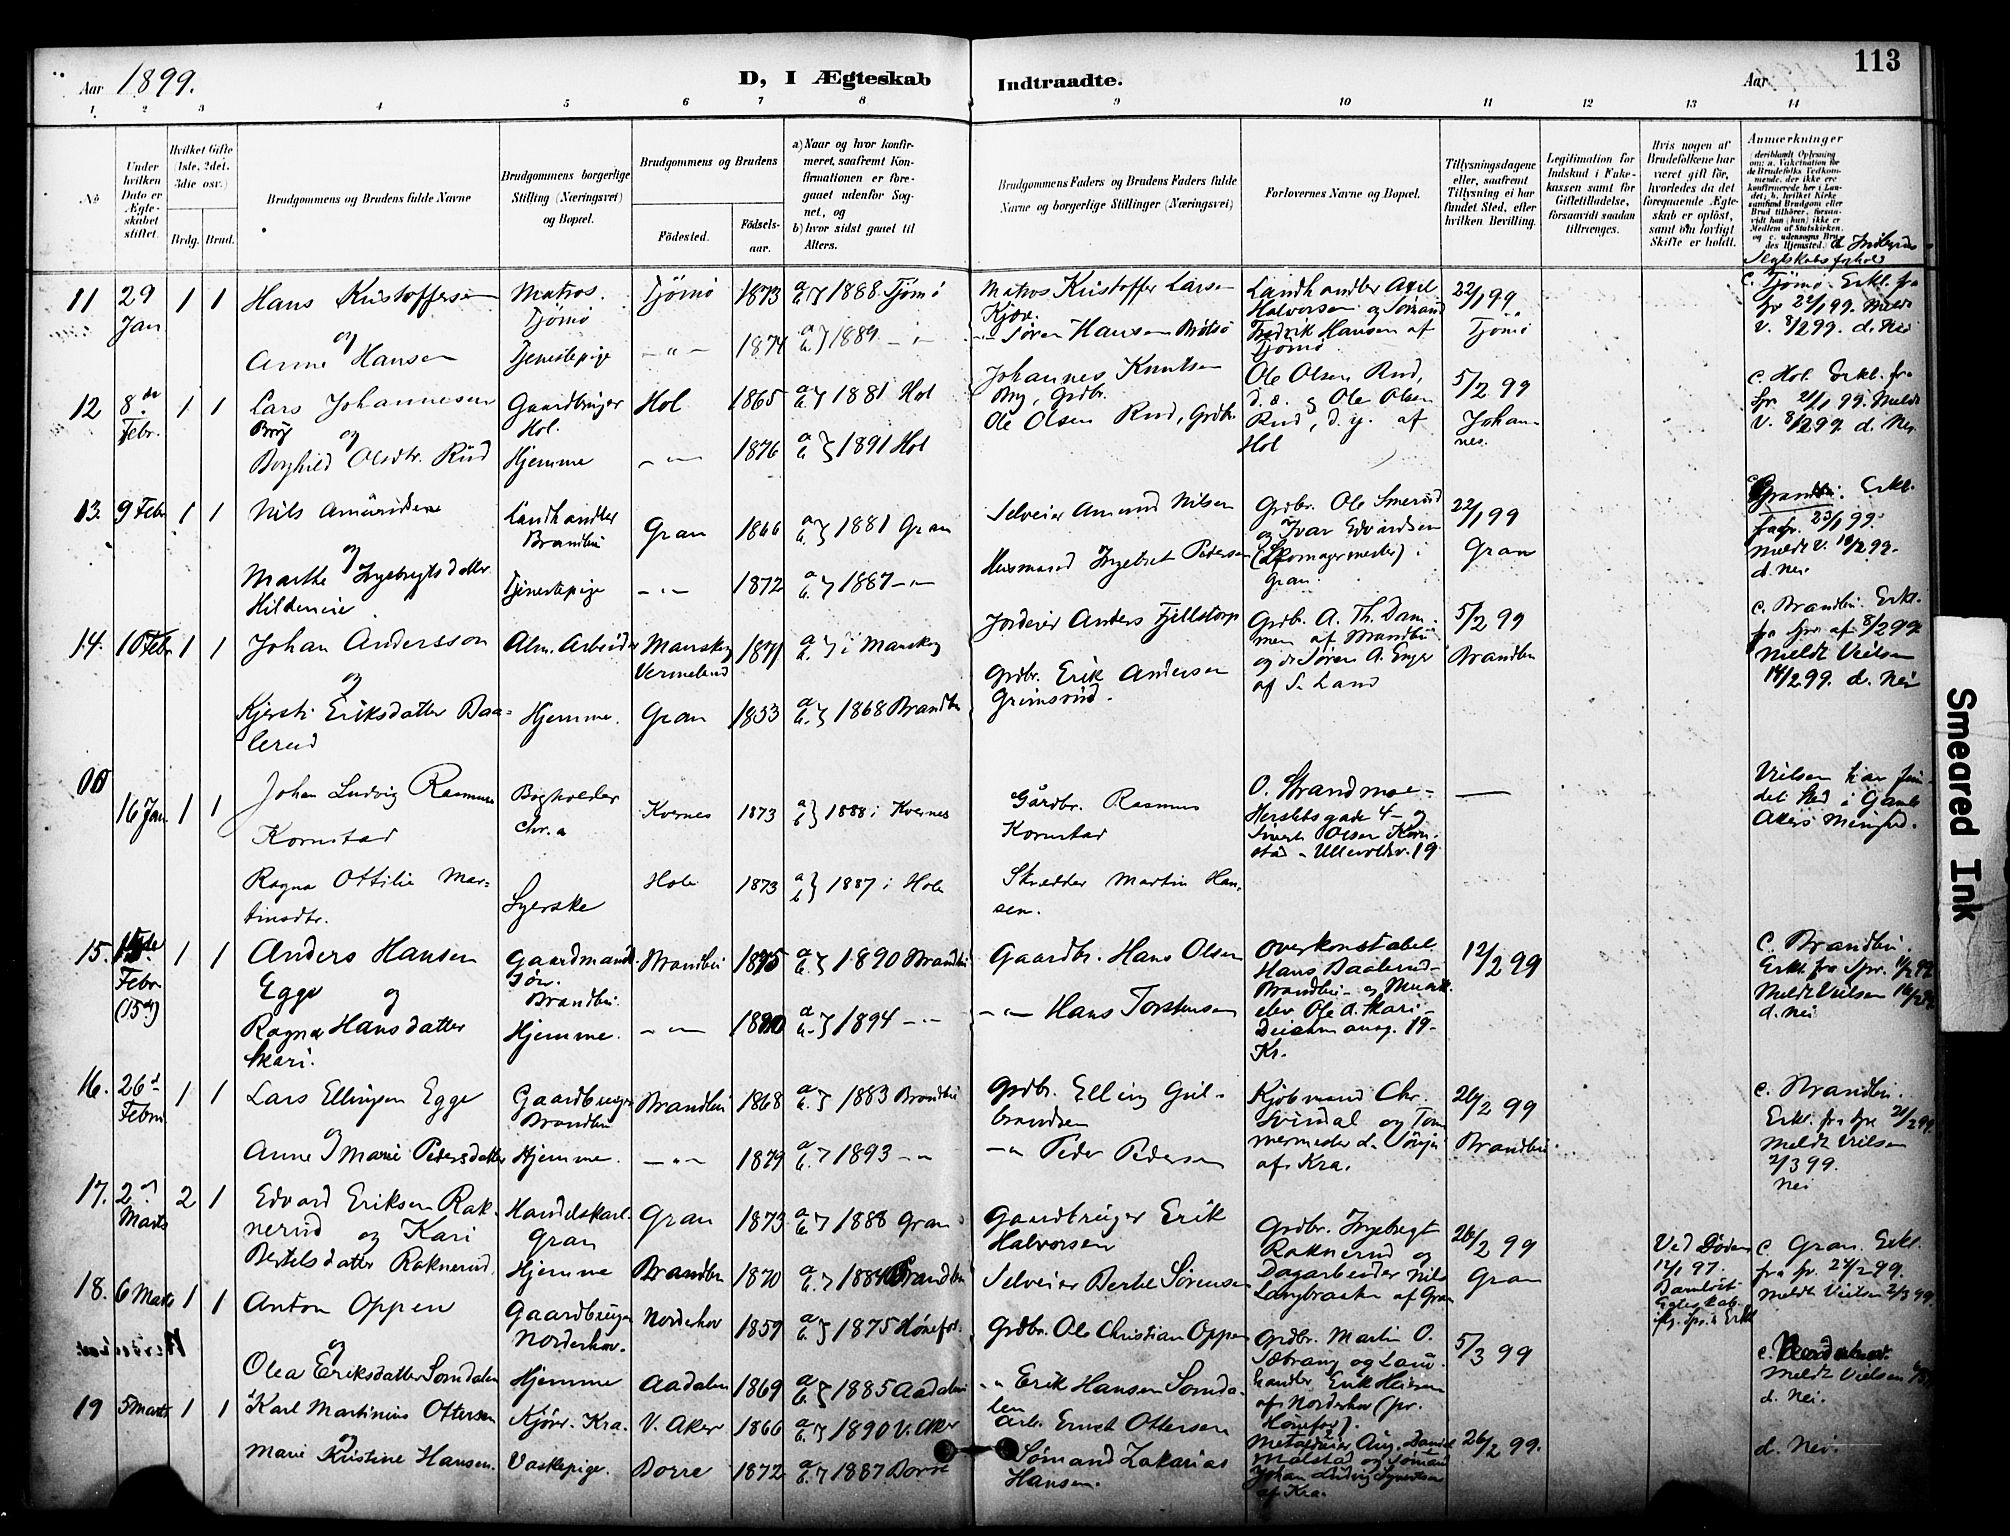 113
Aar 1899.
D, I Ægteskab Indtraadte.
Aar
1. 2 3 4 5 6 7 8 9 10 11 12 13 14
No
Under hvilken Dato er Ægteskabet stiftet.
Hvilket Gifte (1ste, 2det, 3die osv.)
Brdg. Brud.
Brudgommens og Brudens fulde Navne
Brudgommens borgerlige Stilling (Næringsvei) og Bopæl.
Brudgommens og Brudens
Fødested.
Fødselsaar.
a) Naar og hvor konfirmeret, saafremt Konfirmationen er foregaaet udenfor Sognet, og
b) hvor sidst gaaet til Alters.
Brudgommens Faders og Brudens Faders fulde Navne og borgerlige Stillinger (Næringsvei)
Forlovernes Navne og Bopæl.
Tillysningsdagene eller, saafremt Tillysning ei har fundet Sted, efter hvilken Bevilling.
Legitimation for Indskud i Enkekassen samt for Giftetilladelse, forsaavidt saadan tiltrænges.
Hvis nogen af Brudefolkene har været gift før, hvorledes da det foregaaende Ægteskab er opløst, samt om lovligt Skifte er holdt.
Anmærkninger
11 29 Jan 1 1 Hans Kristoffersen Matros. Tjömö Tjömö 1873 a b } 1888 Tjömö Matros Kristoffer Larsen Kjær. Landhandler Axel Halvorsen og Sømand Fredrik Hansen af Tjömö 22/1 99 Tjömö c. Tjömö. Erkl. fra Spr 22/1 99. Meldt V. 8/2 99. d. Nei
og
Anne Hansen Tjenestepige — " — 1874 a b } 1889 — " — " Søren Hansen Brøtsö
12 8de Febr. 1 1 Lars Johannesen Bry Gaardbruger Hol. Hol 1865 a b } 1881 Hol Johannes Knutsen Bry, Grdbr. Ole Olsen Rud, d. æ. og Ole Olsen Rud, d. y. af Hol 5/2 99 Johannes. c. Hol. Erkl. fra Spr. 21/1 99. Meldt V. 8/2 99. d. Nei.
og
Borghild Olsdtr. Rud Hjemme — " — 1876 a b } 1891 Hol Ole Olsen Rud, Grdbr.
13. 9 Febr 1 1 Nils Amundsen Landhandler Brandbu Gran 1866 a b } 1881 Gran Selveier Amund Nilsen Grdbr. Ole Smerud og Ivar Edvardsen (Skomagermester) i Gran. 22/1 99 Gran Erkl. fra Spr. 23/1 99. Meldt V. 10/2 99. d. Nei
og
Marthe Ingebrigtsdatter Hildeneie Tjenestepige — " — 1872 a b } 1887 — " — Husmand Ingebret Pedersen
14. 10 Febr 1 1 Johan Andersson Alm. Arbeider Mansköj Vermeland 1871 a b } i Mansköj Jordeier Anders Fjellstorp Grdbr. A. Th. Dammen af Brandbu og do Søren A. Enger af S. Land 5/2 99 Brandbu c. Brandbu. Erkl. fra Spr. af 8/2 99. Meldt Vielsen 14/2 99. d. Nei
og
Kjersti Eriksdatter Baalerud Hjemme. Gran 1853 a b } 1868 Brandbu Grdbr. Erik Andersen Grimsrud.
00 16 Jan. 1 1 Johan Ludvig Rasmussen Kornstad Bogholder Chr.a Kvernes 1873 a b } 1888 i Kvernes Gårdbr. Rasmus Kornstad O. Strandmoe — Herslebsgade 4 — og Sivert Olsen Kornstad — Ullevoldsv. 19. — Vielsen har fundet sted i Gamle Akers Menighed.
Ragna Ottilie Martinsdtr. Syerske Hole 1873 a b } 1887 i Hole Skrædder Martin Hansen.
15. Febr (15de) 1 1 Anders Hansen Egge Gaardmands Søn. Brandbu. Brandbu 1875 a b } 1890 Brandbu Gaardbr. Hans Olsen Overkonstabel Hans Baalerud — Brandbu — og Musikelev Ole A. Skari — Deichmansg. 19 — Kr. 12/2 99 c. Brandbu. Erkl. fra Spr. 11/2 99. Meldt Vielsen 16/2 99. d. Nei
og
Ragna Hansdatter Skari. Hjemme. — " — a b } 1894 — " — — " — Hans Torstensen
16. 26d Febru 1 1 Lars Ellingsen Egge Gaardbruger Brandbu Brandbu 1868 a b } 1883 Brandbu Grdbr. Elling Gulbrandsen Kjøbmand Chr. Svindal og Tommermester af Kra. 26/2 99 Brandbu. c. Brandbu. Erkl. fra Spr 21/2 99. Meldt Vielsen 2/3 99. Nei
og
Anne Marie Pedersdatter Hjemme. — " — 1879 a b } 1893 — " — — " Peder Pedersen
17. 2d Marts 2 1 Edvard Eriksen Raknerud og Kari Handelskarl. Gran Gran 1873 a b } 1888 Gran Gaardbruger Erik Halvorsen Grdbr. Ingebregt Raknerud og Dagarbeider Nils Langbraaten af Gran 26/2 99 Gran Ved Døden 12/1 97. Barnløst Egteskab. c. Gran. Erkl. fra Spr. 27/2 99. Meldt Vielsen 2/3 99.
Bertelsdatter Raknerud. Hjemme Brandbu 1870 a b } 1884 Brandbu Selveier Bertel Sørensen
18. 6 Marts 1 1 Anton Oppen Gaardbruger Norderhov. Norderhov 1859 a b } 1875 Hönefos. Grdbr. Ole Christian Oppen Grdbr. Martin O. Sætrang og Landhandler Erik Hansen af Norderhov (pr. Hönefos). 5/3 99 c. Norderhov. Meldt Vielsen d. Nei.
og
Olea Eriksdatter Somdalen Hjemme Aadalen 1869 a b } 1885 Aadalen " " Erik Hansen Somdalen
19 5 Marts 1 1 Karl Martinius Ottersen Kjører. Kra. V. Aker 1866 a b } 1890 V. Aker Arb. Ernst Ottersen Aug. Daniel Malstad og Sømand Johan Ludvig af Kra. 26/2 99. d. Nei.
og
Marie Kristine Hansen. Vaskepige. Borre 1872 a b } 1887 Borre Sømand Zakarias Hansen.
Smeared Ink